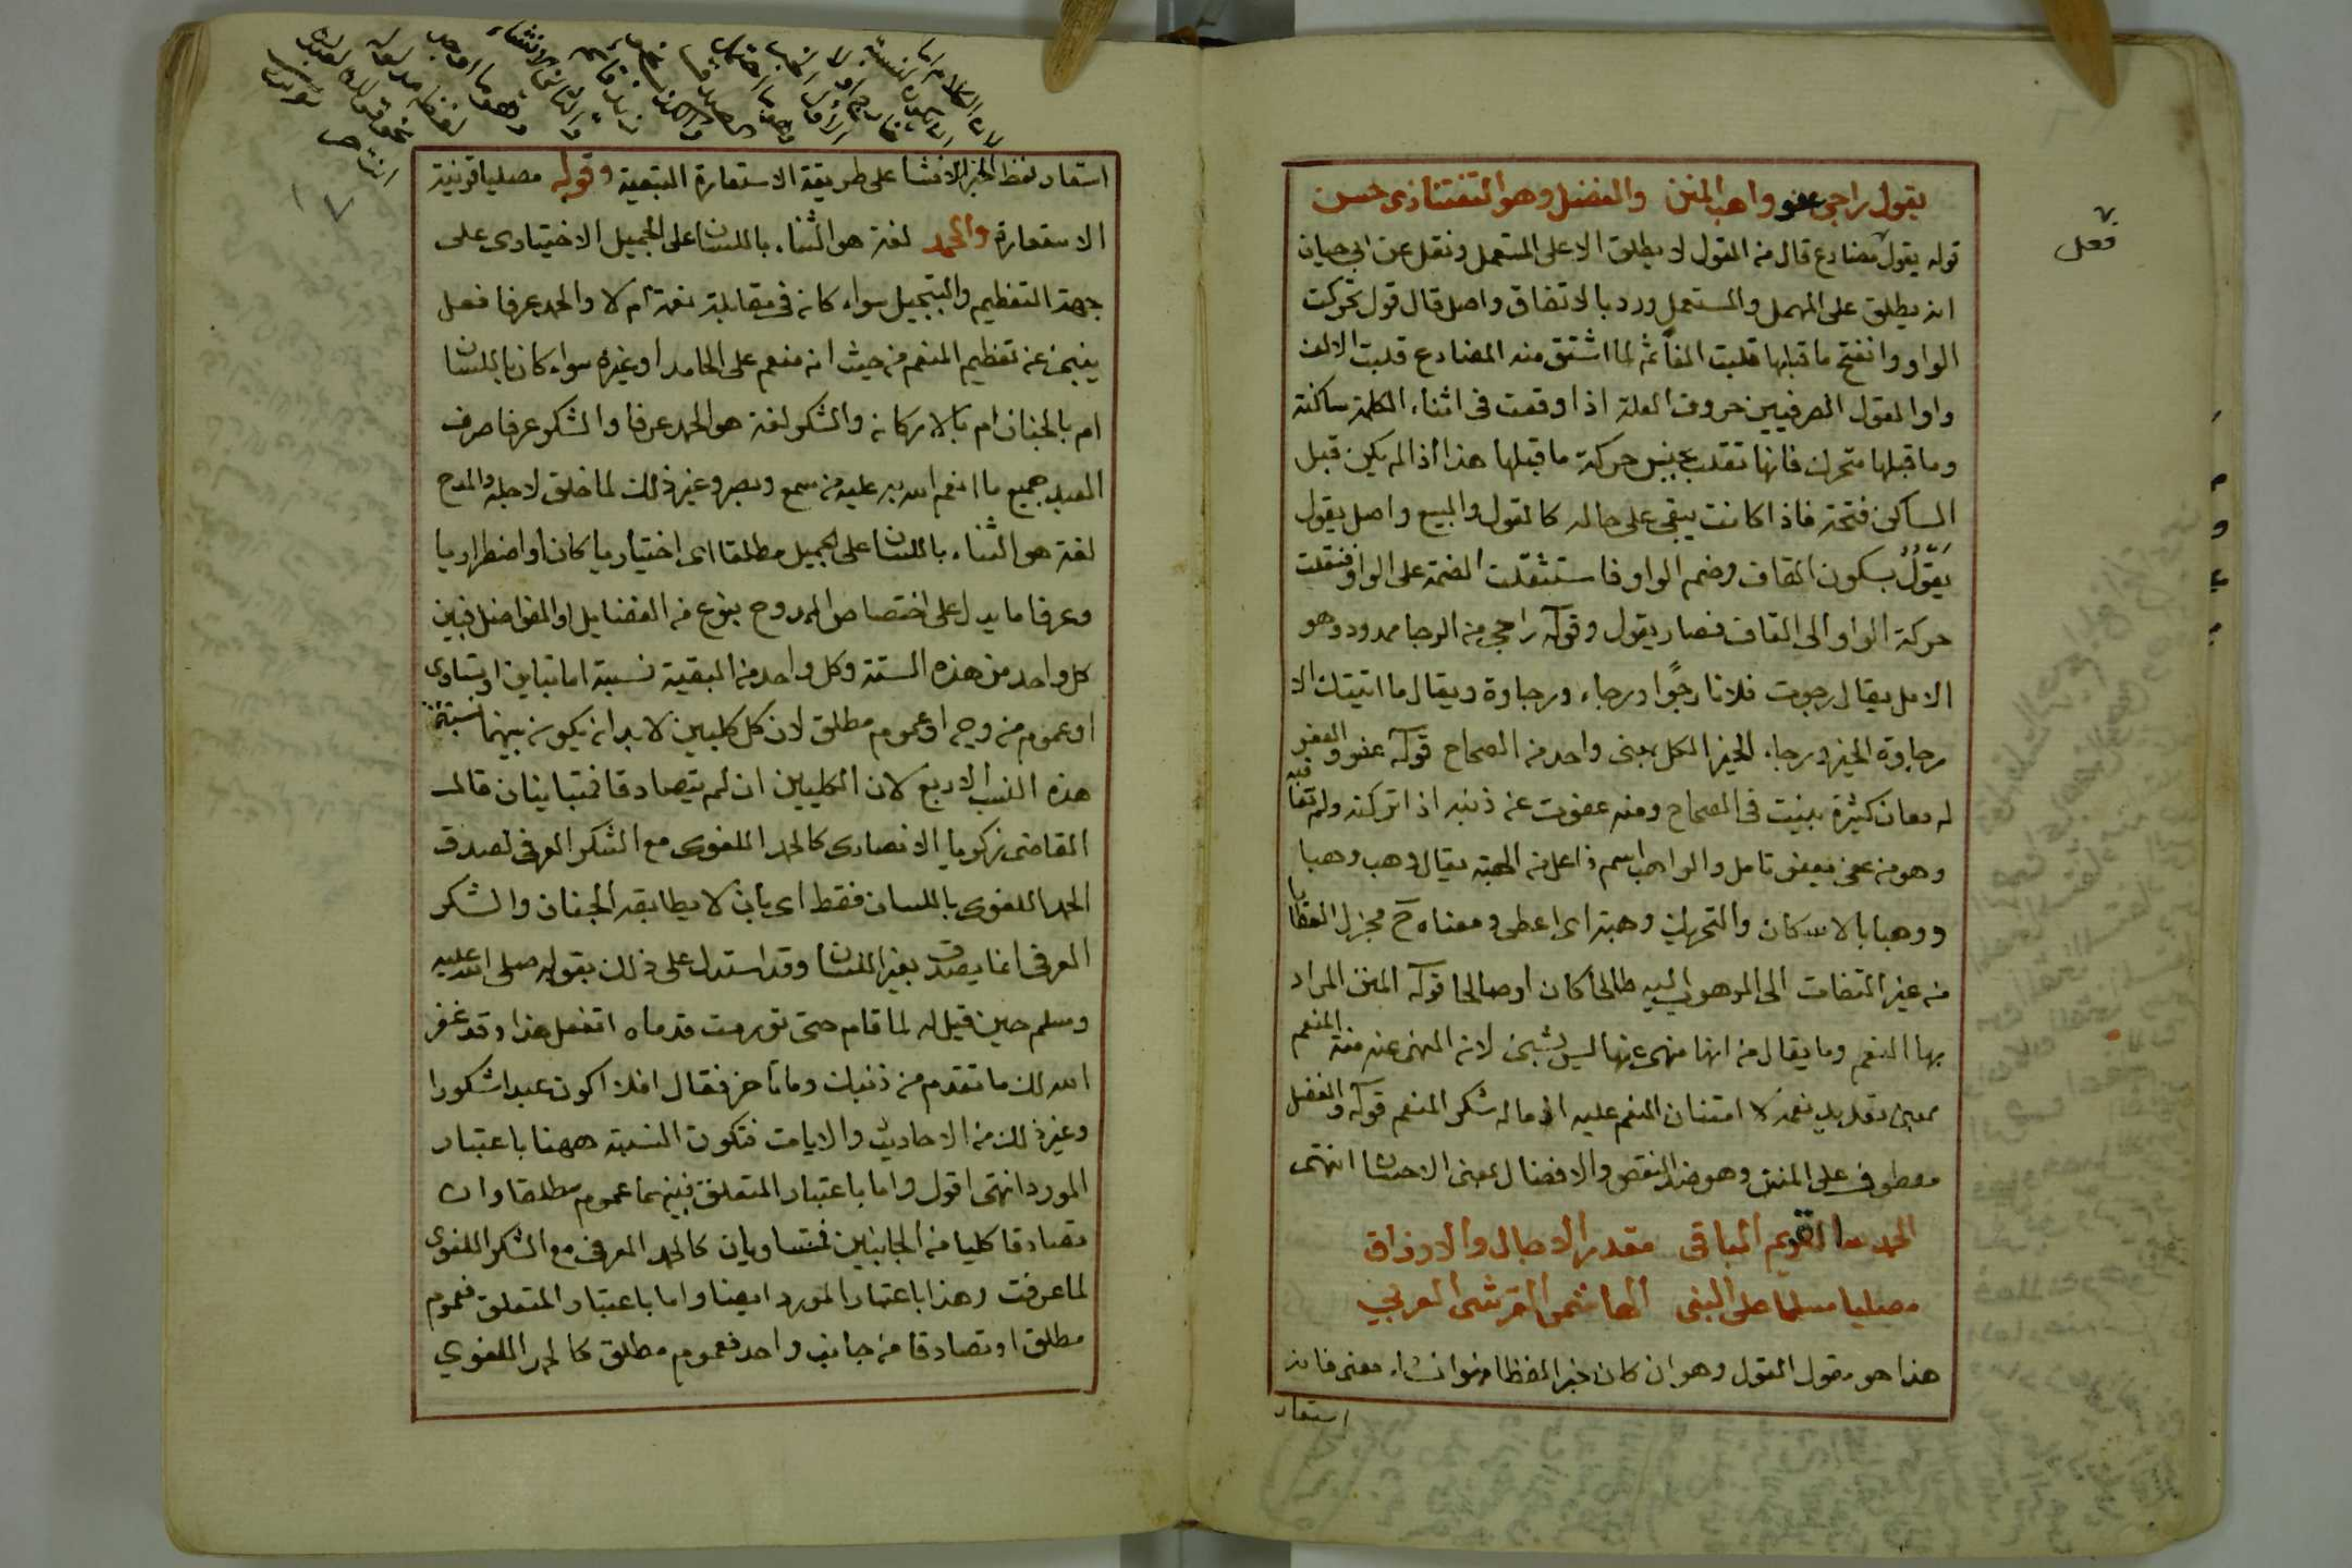 يقول راجي عفو واهب المنن والفضل وهو التفتنازى حسن
قوله يقول مضارع قال من القول لا يطلق الا على المستعمل ونقل عن ابى حيان
انه يطلق على المهمل والمستعمل ورد بالاتفاق واصل قال قول تحركت
الواو وانفتح ما قبلها قلبت الفا ثم لما اشتق منه المضارع قلبت الالف
واوا لقول الصرفيين حروف العلة اذا وقعت فى اثناء الكلمة ساكنة
وما قبلها متحرك فانها تقلب بجنس حركة ما قبلها هذا اذا لم يكن قبل
الساكن فتحة فاذا كانت يبقى على حاله كالقول والبيع واصل يقول
يَقْوُلُ بسكون القاف وضم الواو فاستثقلت الضمة على الواو فنقلت
حركة الواو الى القاف فصار يقول وقوله راجي من الرجا ممدود وهو
الامل يقال رجوت فلانا رجوا ورجاء ورجاوة ويقال ما اتيتك الا
رجاوة الخير ورجاء الخير الكل بمعنى واحد من الصحاح قوله عفو والعفو
له معان كثيرة بينت فى الصحاح ومنه عفوت عن ذنبه اذا تركته ولم تعاقبه
وهو من عفى يعفو تامل والواهب اسم فاعل من الهبة يقال وهب وهبا
ووهبا بالاسكان والتحريك وهبة اى اعطى ومعناه ح مجزل العطايا
من غير التفات الى الموهوب اليه طالحا كان او صالحا قوله المنن المراد
بها النعم وما يقال من انها منهى عنها ليس بشيئ لانه المنهى عنه منة المنعم
بمعنى تعديد نعمه لا امتنان المنعم عليه اذ ماله شكر المنعم قوله والفضل
معطوف على المنن وهو ضد النقص والافضال بمعنى الاحسان انتهى
الحمد لله القديم الباقى مقدر الاجال والارزاق
مصليا مسلما على النبى الهاشمى القرشى العربي
هذا هو مقول القول وهو ان كان خبر اللفظا فهو انشاء معنى فانه
استعار
فعل
استعار لفظ الخبر للانشا على طريقة الاستعارة التبعية وقوله مصليا قرينة
الاستعارة والحمد لغة هو الثناء باللسان على الجميل الاختيارى على
جهة التعظيم والتبجيل سواء كان فى مقابلة نعمة ام لا والحمد عرفا فعل
ينبئ عن تعظيم المنعم من حيث انه منعم على الحامد او غيره سواء كان باللسان
ام بالجنان ام بالاركان والشكر لغة هو الحمد عرفا والشكر عرفا صرف
العبد جميع ما انعم الله به عليه من سمع وبصر وغير ذلك لما خلق لاجله والمدح
لغة هو الثناء باللسان على الجميل مطلقا اى اختياريا كان او اضطراريا
وعرفا ما يدل على اختصاص الممدوح بنوع من الفضايل او الفواضل فبين
كل واحد من هذه الستة وكل واحد من البقية نسبة اما تباين او تساوى
او عموم من وجه او عموم مطلق لان كل كليين لا بد ان يكون بينهما نسبة من
هذه النسب الاربع لان الكليين ان لم يتصادقا فمتباينان قال
القاضى زكريا الانصارى كالحمد اللغوى مع الشكر العرفى لصدق
الحمد اللغوى باللسان فقط اى بان لا يطابقه الجنان والشكر
العرفى انما يصدق بغير اللسان وقد استدل على ذلك بقوله صلى الله عليه
وسلم حين قيل له لما قام حتى تورمت قدماه اتفعل هذا وقد غفر
الله لك ما تقدم من ذنبك وما تأخر فقال افلا اكون عبدا شكورا
وغير ذلك من الاحاديث والايات فتكون النسبة ههنا باعتبار
المورد انتهى اقول واما باعتبار المتعلق فبينهما عموم مطلقا وان
تصادقا كليا من الجانبين فمتساويان كالحمد العرفى مع الشكر اللغوى
لما عرفت وهذا باعتبار المورد ايضا واما باعتبار المتعلق فعموم
مطلق او تصادقا من جانب واحد فعموم مطلق كالحمد اللغوي